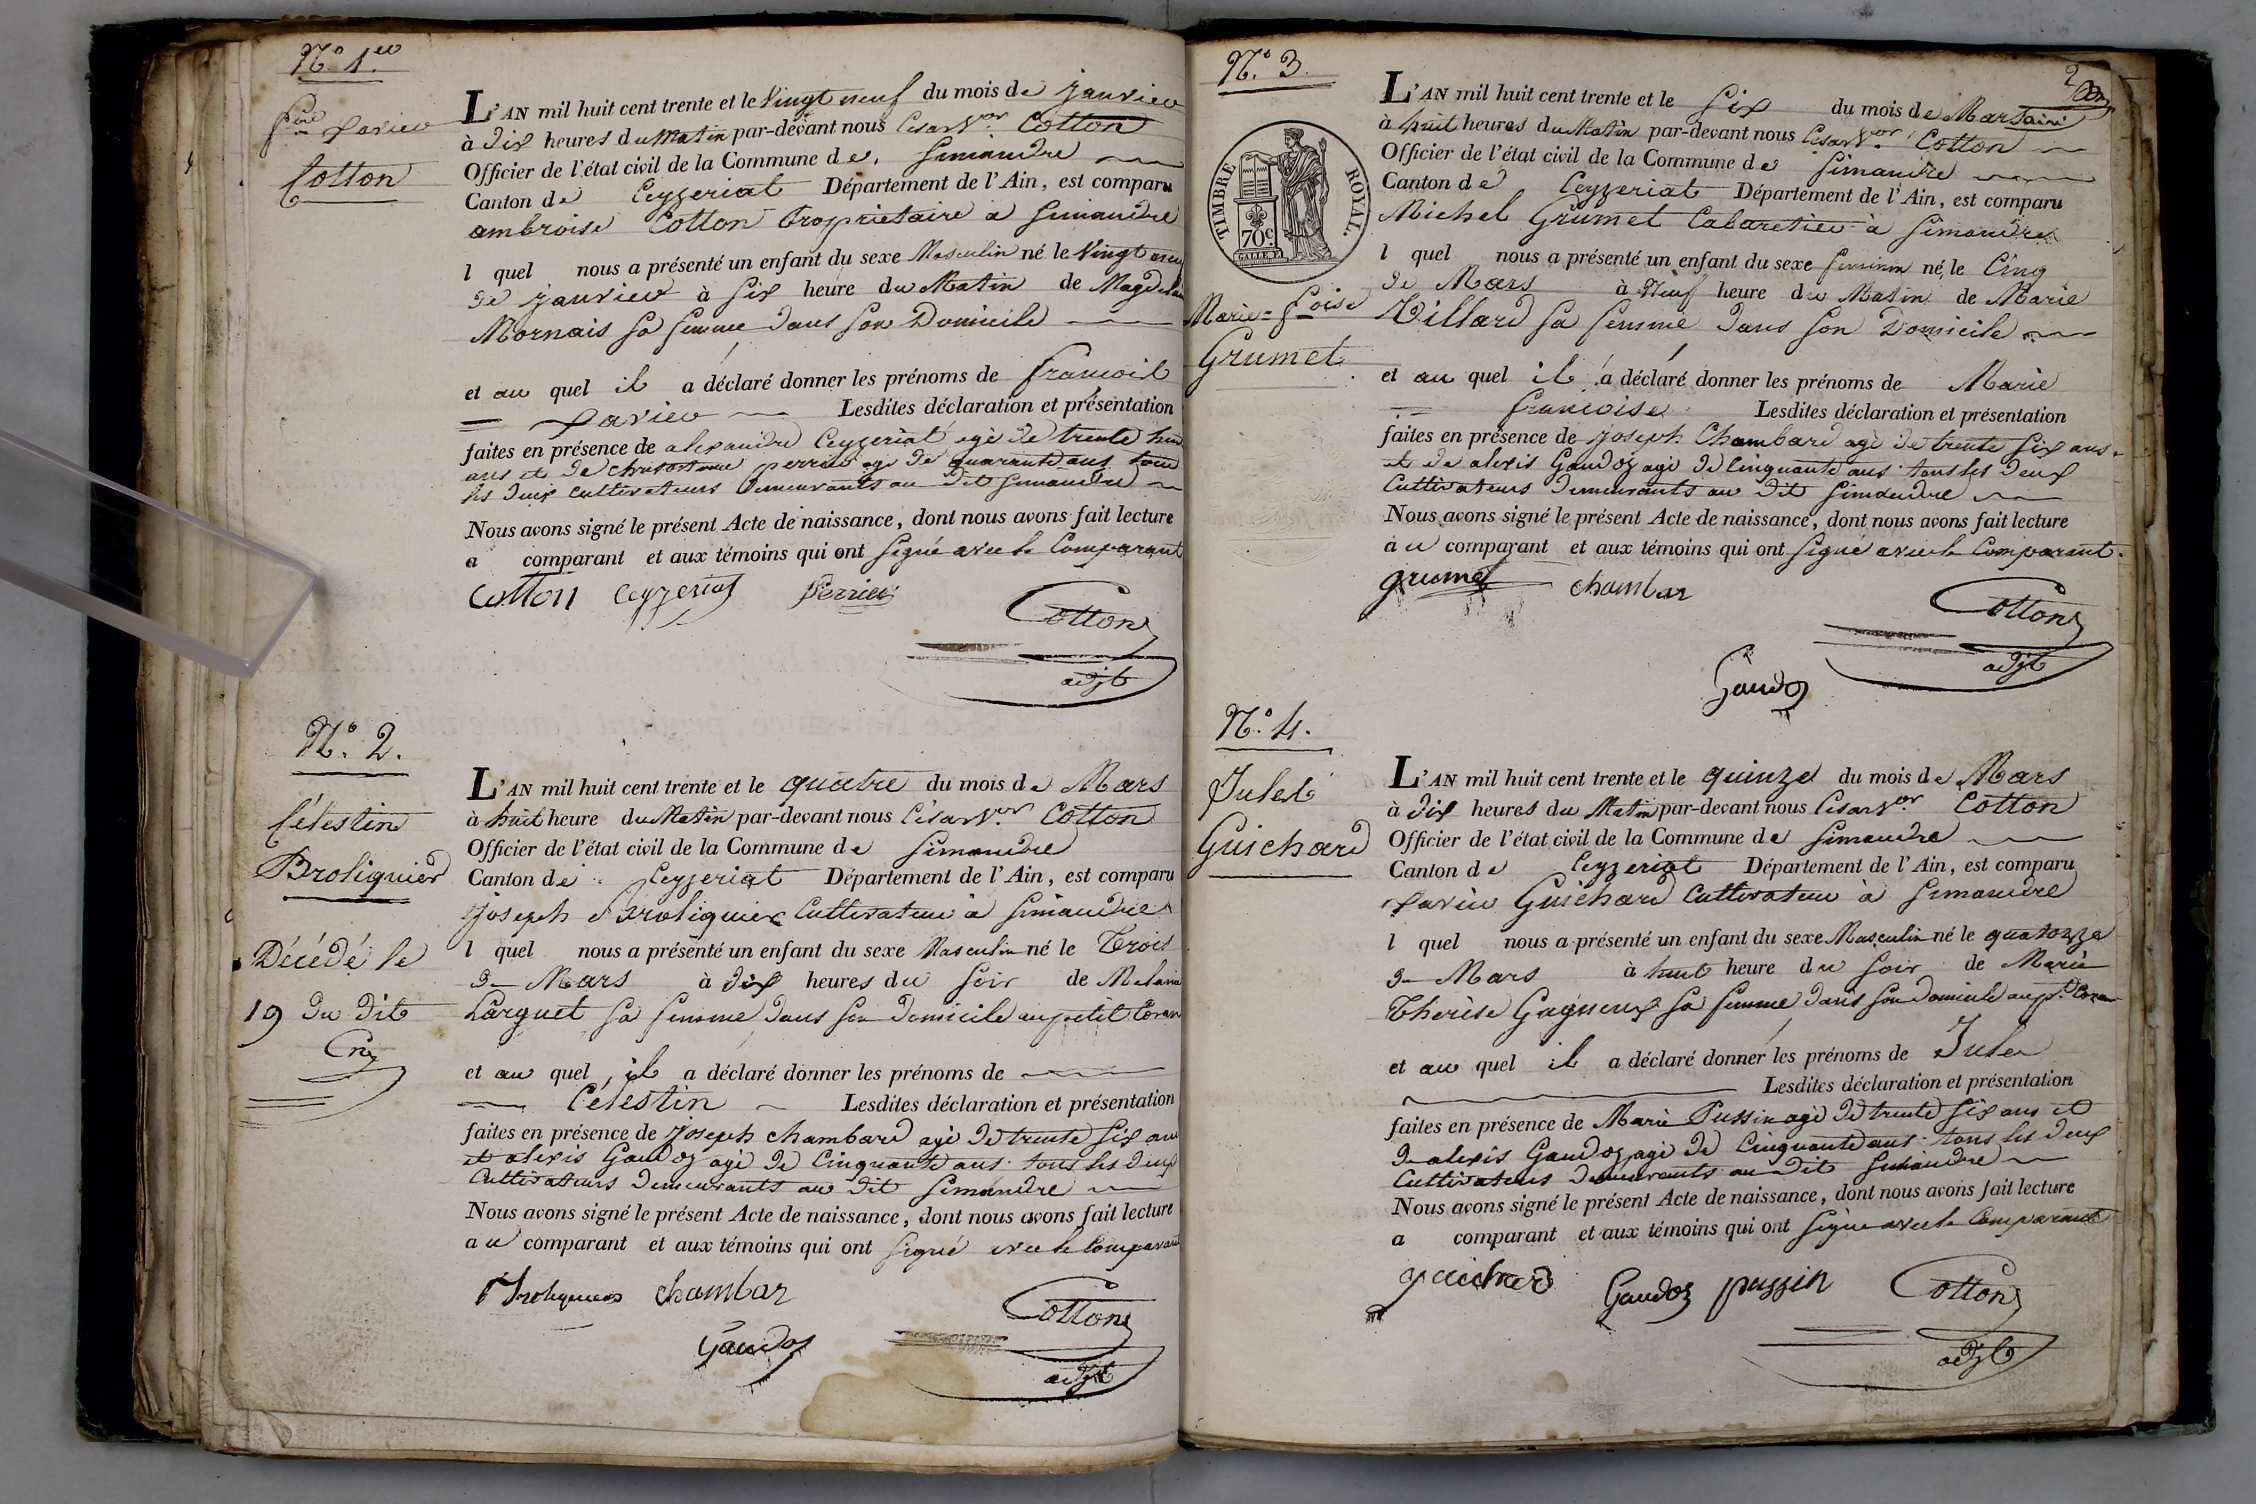 N.º 1.er
f.çois Xavier
Cotton
L'AN mil huit cent trente et le Vingt neuf du mois de Janvier
à Dix heures du Matin par-devant nous Cesar V.or Cotton
Officier de l'état civil de la Commune de Simandre
Canton de Ceyzeriat Département de l'Ain, est comparu
ambroise Cotton Propriétaire a Simandre
l quel nous a présenté un enfant du sexe Masculin né le Vingt neuf
de Janvier à Six heure du Matin de Magdelaine
Mornais sa femme dans son Domicile
et au quel il a déclaré donner les prénoms de francois
Xavier Lesdites déclaration et présentation
faites en présence de alexandre Ceyzeriat agé de trente huit
ans et de perrier agé de quarante ans tous
les deux cultivateurs demeurants au dit Simandre
Nous avons signé le présent Acte de naissance, dont nous avons fait lecture
a comparant et aux témoins qui ont signé avec le Comparant
Cotton Ceyzeriat Perrier
Cotton
adjt
N.º 2.
Célestin
Broliquier
Décédé le
19 du dit
L'AN mil huit cent trente et le quatre du mois de Mars
à huit heure du Matin par-devant nous César V.or Cotton
Officier de l'état civil de la Commune de Simandre
Canton de Ceyzeriat Département de l'Ain, est comparu
Joseph Broliquier Cultivateur à Simandre
l quel nous a présenté un enfant du sexe Masculin né le Trois
de Mars à dix heures du Soir de Melanie
Larguet sa femme dans son domicile au petit
et au quel il a déclaré donner les prénoms de
Célestin Lesdites déclaration et présentation
faites en présence de Joseph Chambard agé de trente six ans
et alexis Gaudoz agé de Cinquante ans tous les deux
Cultivateurs demeurants au dit Simandre
Nous avons signé le présent Acte de naissance, dont nous avons fait lecture
a u comparant et aux témoins qui ont signé avec le Comparant
Broliquier Chambar
Gaudoz
Cotton
adjt
2
N.º 3.
TIMBRE ROYAL.
70c.
Marie-f.coise
Grumet
L'AN mil huit cent trente et le Six du mois de Mars
à huit heures du Matin par-devant nous Cesar V.or Cotton
Officier de l'état civil de la Commune de Simandre
Canton de Ceyzeriat Département de l'Ain, est comparu
Michel Grumet Cabaretier à Simandre
l quel nous a présenté un enfant du sexe feminin né, le Cinq
de Mars à Neuf heure du Matin de Marie
Villard sa femme dans son Domicile
et au quel il a déclaré donner les prénoms de Marie
francoise Lesdites déclaration et présentation
faites en présence de Joseph Chambard agé de trente six ans
et de alexis Gaudoz agé de Cinquante ans tous les deux
Cultivateurs demeurants au dit Simandre
Nous avons signé le présent Acte de naissance, dont nous avons fait lecture
a u comparant et aux témoins qui ont signé avec le Comparant.
grumet chambar
Cotton
adjt
Gaudoz
N.º 4.
Jules
Guichard
L'AN mil huit cent trente et le quinze du mois de Mars
à dix heures du Matin par-devant nous Cesar V.or Cotton
Officier de l'état civil de la Commune de Simandre
Canton de Ceyzeriat Département de l'Ain, est comparu
Xavier Guichard Cultivateur à Simandre
l quel nous a présenté un enfant du sexe Masculin né le quatorze
de Mars à huit heure du Soir de Marie
Therèse Gagneux sa femme dans son domicile au p.t
et au quel il a déclaré donner les prénoms de Jules
Lesdites déclaration et présentation
faites en présence de Marie Pussin agé de trente six ans et
de alexis Gaudoz agé de Cinquante ans tous les deux
Cultivateurs demeurants au dit Simandre
Nous avons signé le présent Acte de naissance, dont nous avons fait lecture
a comparant et aux témoins qui ont signé avec le Comparant
guichard Gaudoz pussin Cotton
adjt